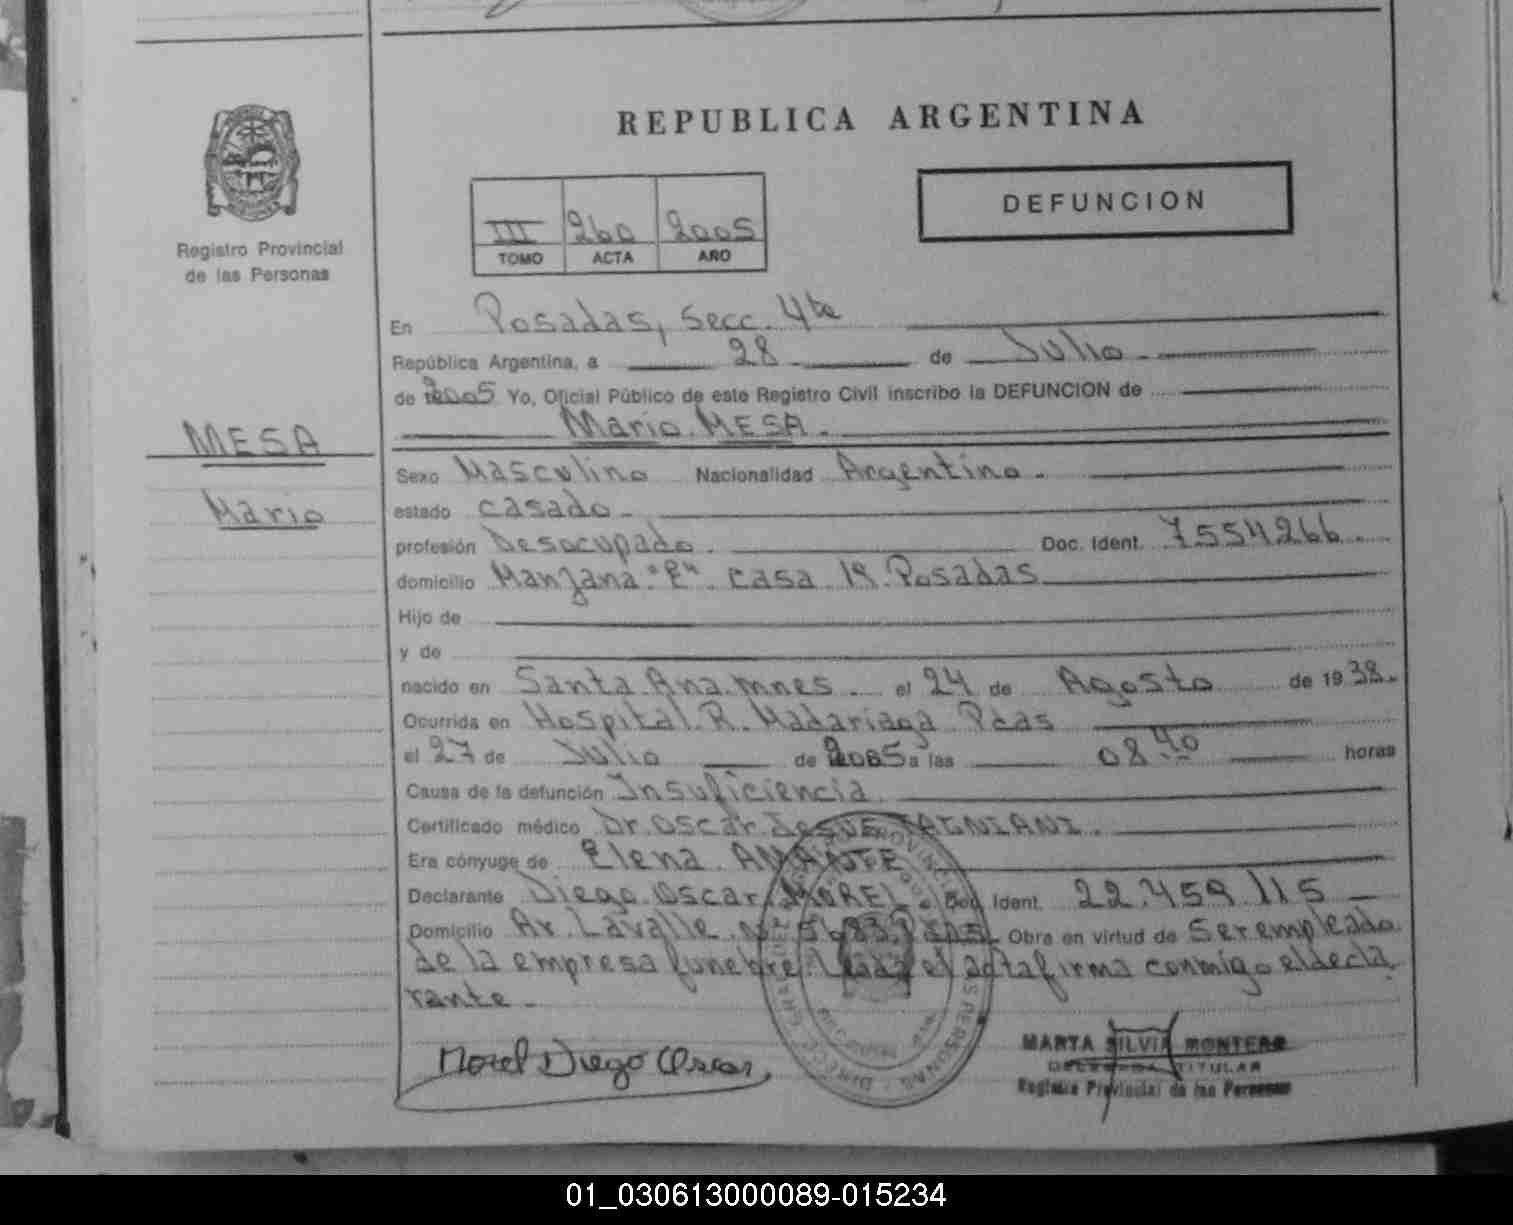 REPUBLICA ARGENTINA
DEFUNCION
III 260 2005
TOMO ACTA AÑO
Registro Provincial
de las Personas
En Posadas, Secc. 4ta
República Argentina, a 28 de Julio
de 2005 Yo, Oficial Público de este Registro Civil inscribo la DEFUNCION de
Mario MESA.
MESA
Mario
Sexo Masculino Nacionalidad Argentino.
estado casado
profesión Desocupado. Doc. Ident. 7554266
domicilio Manzana "E" casa 18 Posadas
Hijo de
y de
nacido en Santa Ana mnes. el 24 de Agosto de 1938.
Ocurrida en Hospital R. Madariaga Pdas
el 27 de Julio de 2005 a las 08 40 horas
Causa de la defunción Insuficiencia
Certificado médico Dr. Oscar Jesus
Era cónyuge de Elena AMANTE
Declarante Diego Oscar MOREL. Doc. Ident. 22.459.115
Domicilio Av. Lavalle Nº 5683 Obra en virtud de Ser empleado
de la empresa funebre. Leida el acta firma conmigo el decla
rante.
Morel Diego Oscar
MARTA SILVIA MONTERO
DELEGADA TITULAR
Registro Provincial de las Personas
01_030613000089-015234